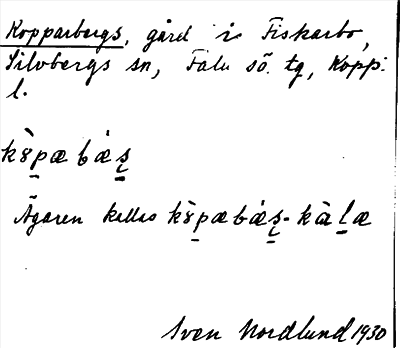 Kopparbergs, gård i Fiskarbo,
Silvbergs sn, Falu sö. tg, Kopp.
l.
kȣ̀p̠æbás̨̠
Ägaren kallas kȣ̀p̠æbás̨̠-kàl̠æ
Sven Nordlund 1930